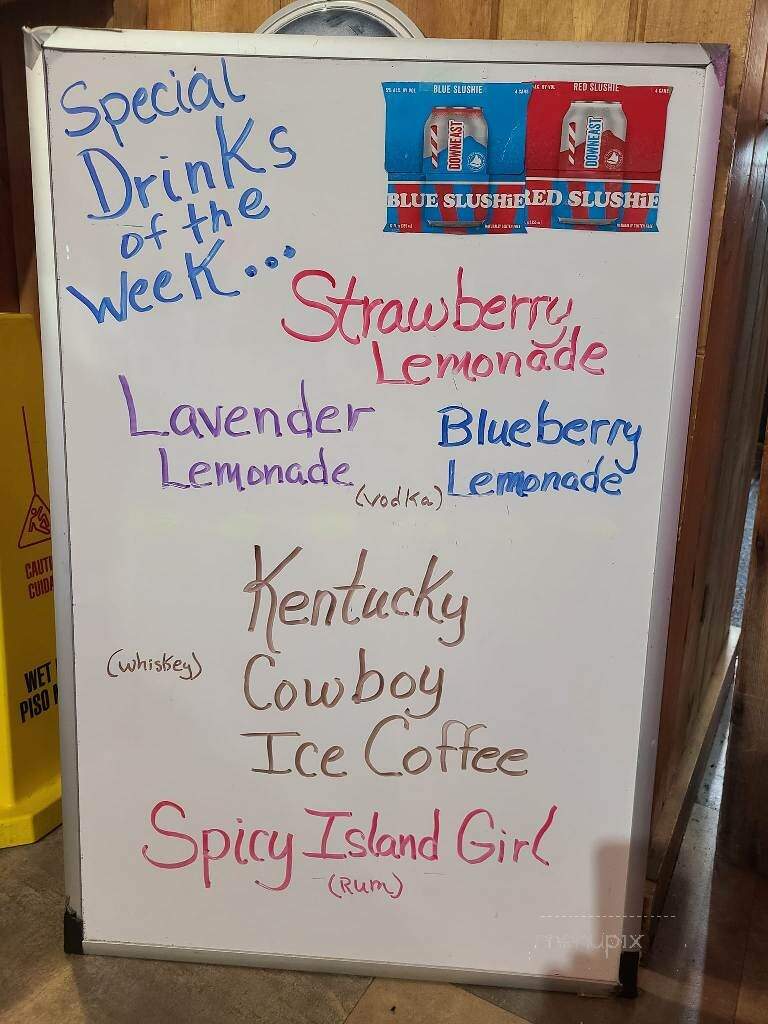 Special
Drinks
of the
Week...
5% ALC. BY VOL BLUE SLUSHIE 4 CANS
RED SLUSHIE 4 CANS
DOWNEAST
DOWNEAST
BLUE SLUSHiE
RED SLUSHiE
Strawberry
Lemonade
Lavender
Lemonade
Blueberry
Lemonade
(vodka)
Kentucky
(whiskey)
Cowboy
Ice Coffee
Spicy Island Girl
(Rum)
CAUTI
CUIDA
WET
PISO M
menupix